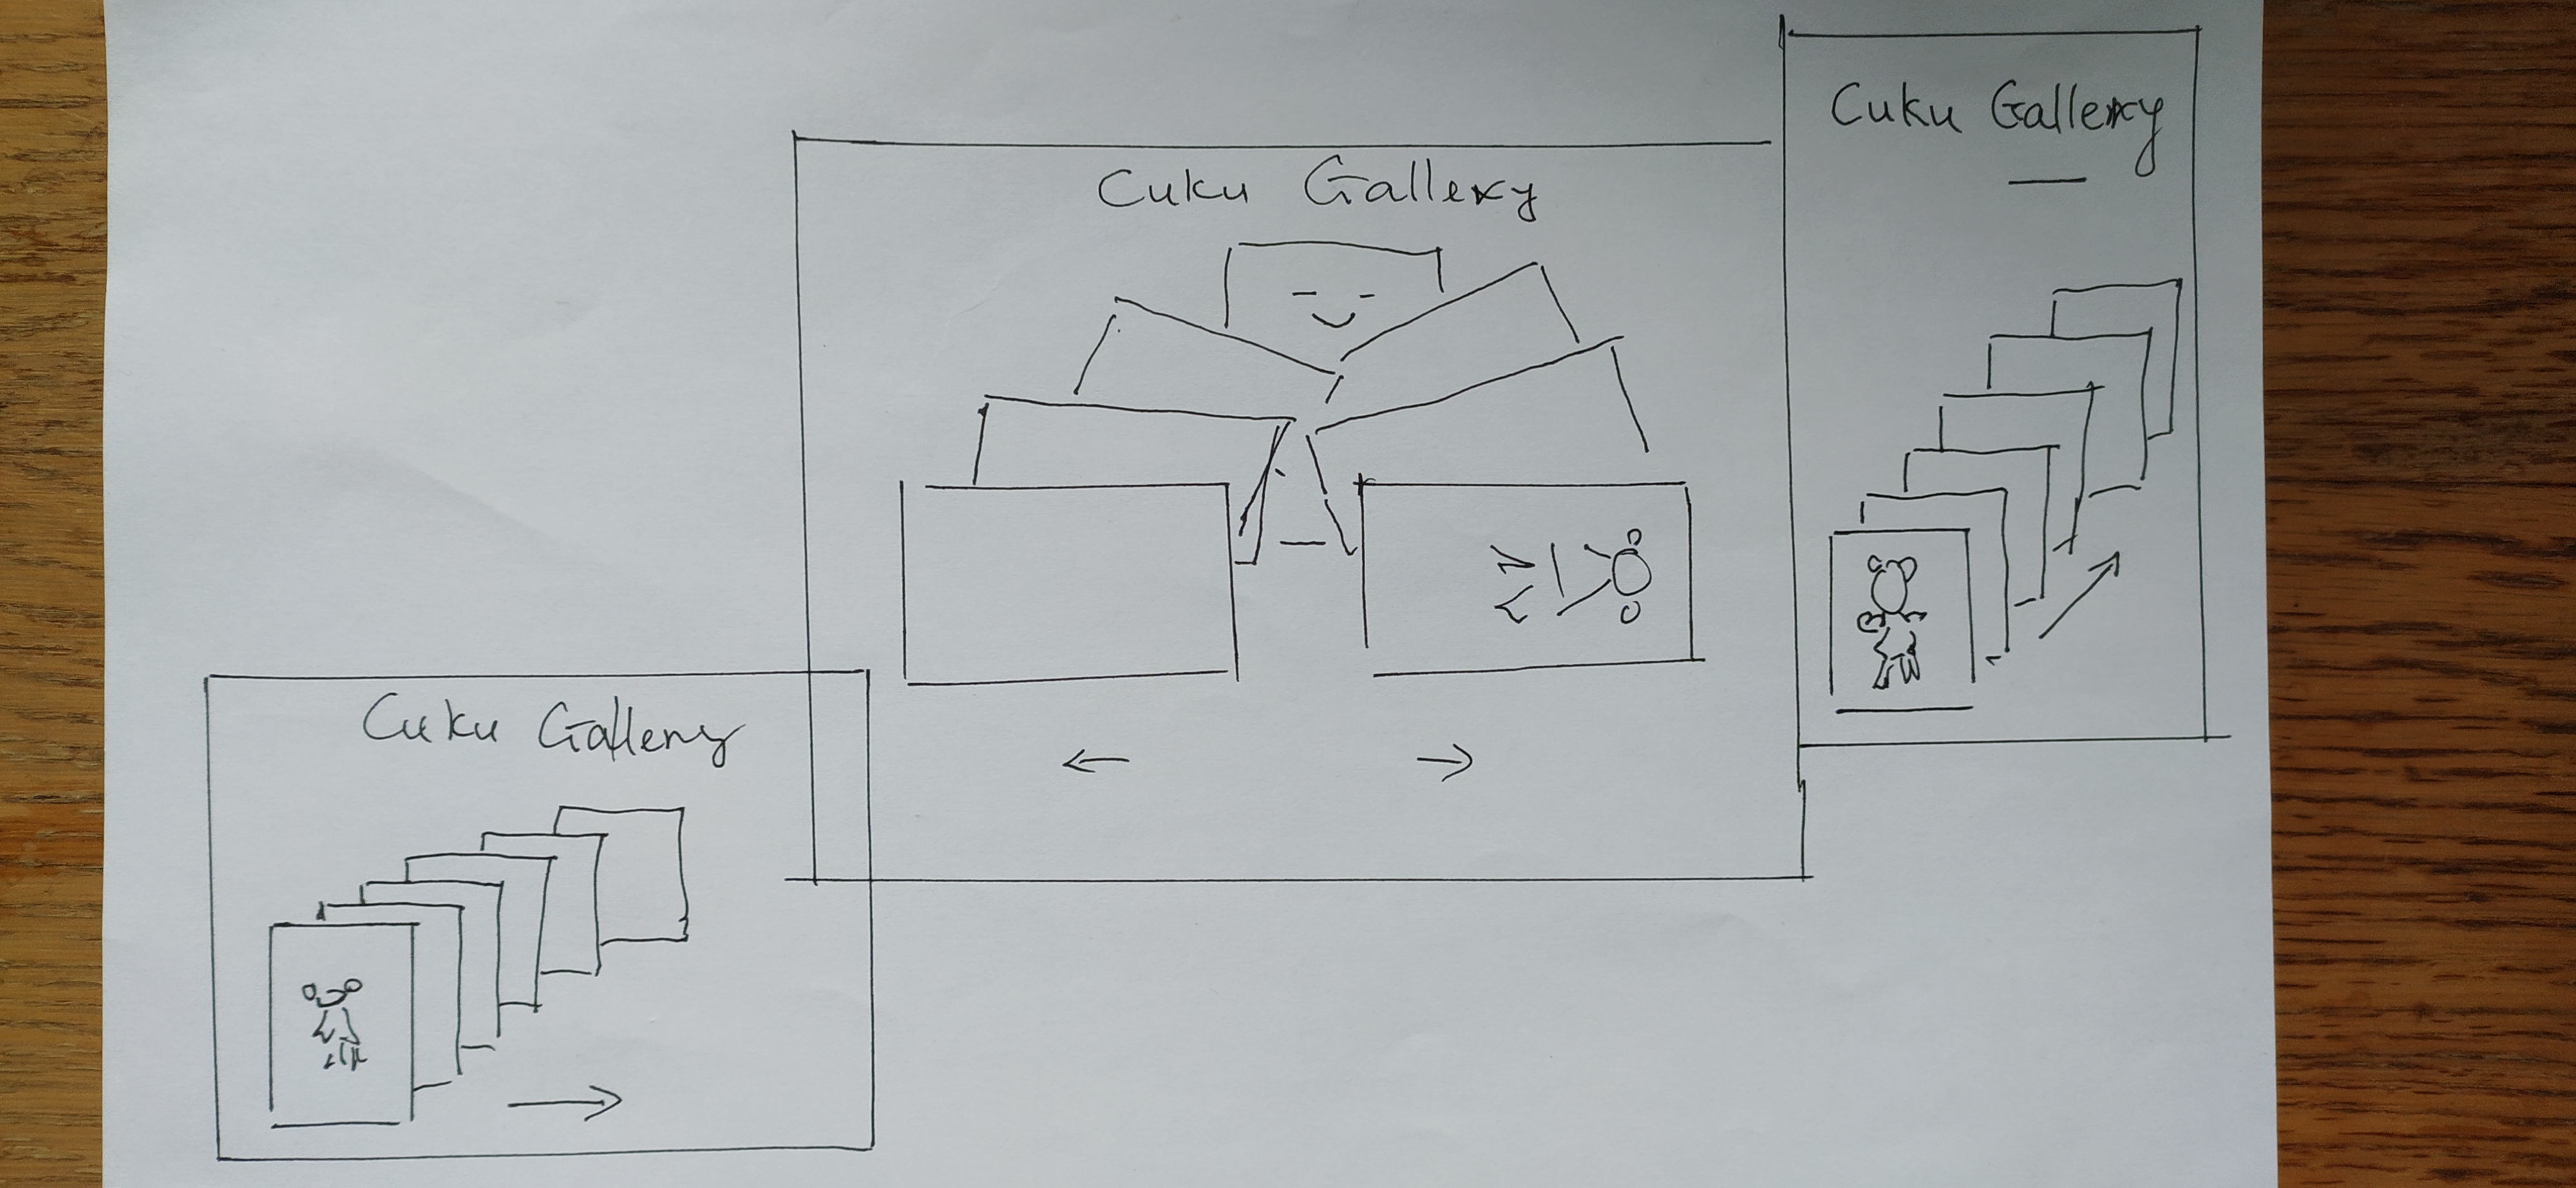 Cuku Gallery
Cuku Gallery
Cuku Gallery